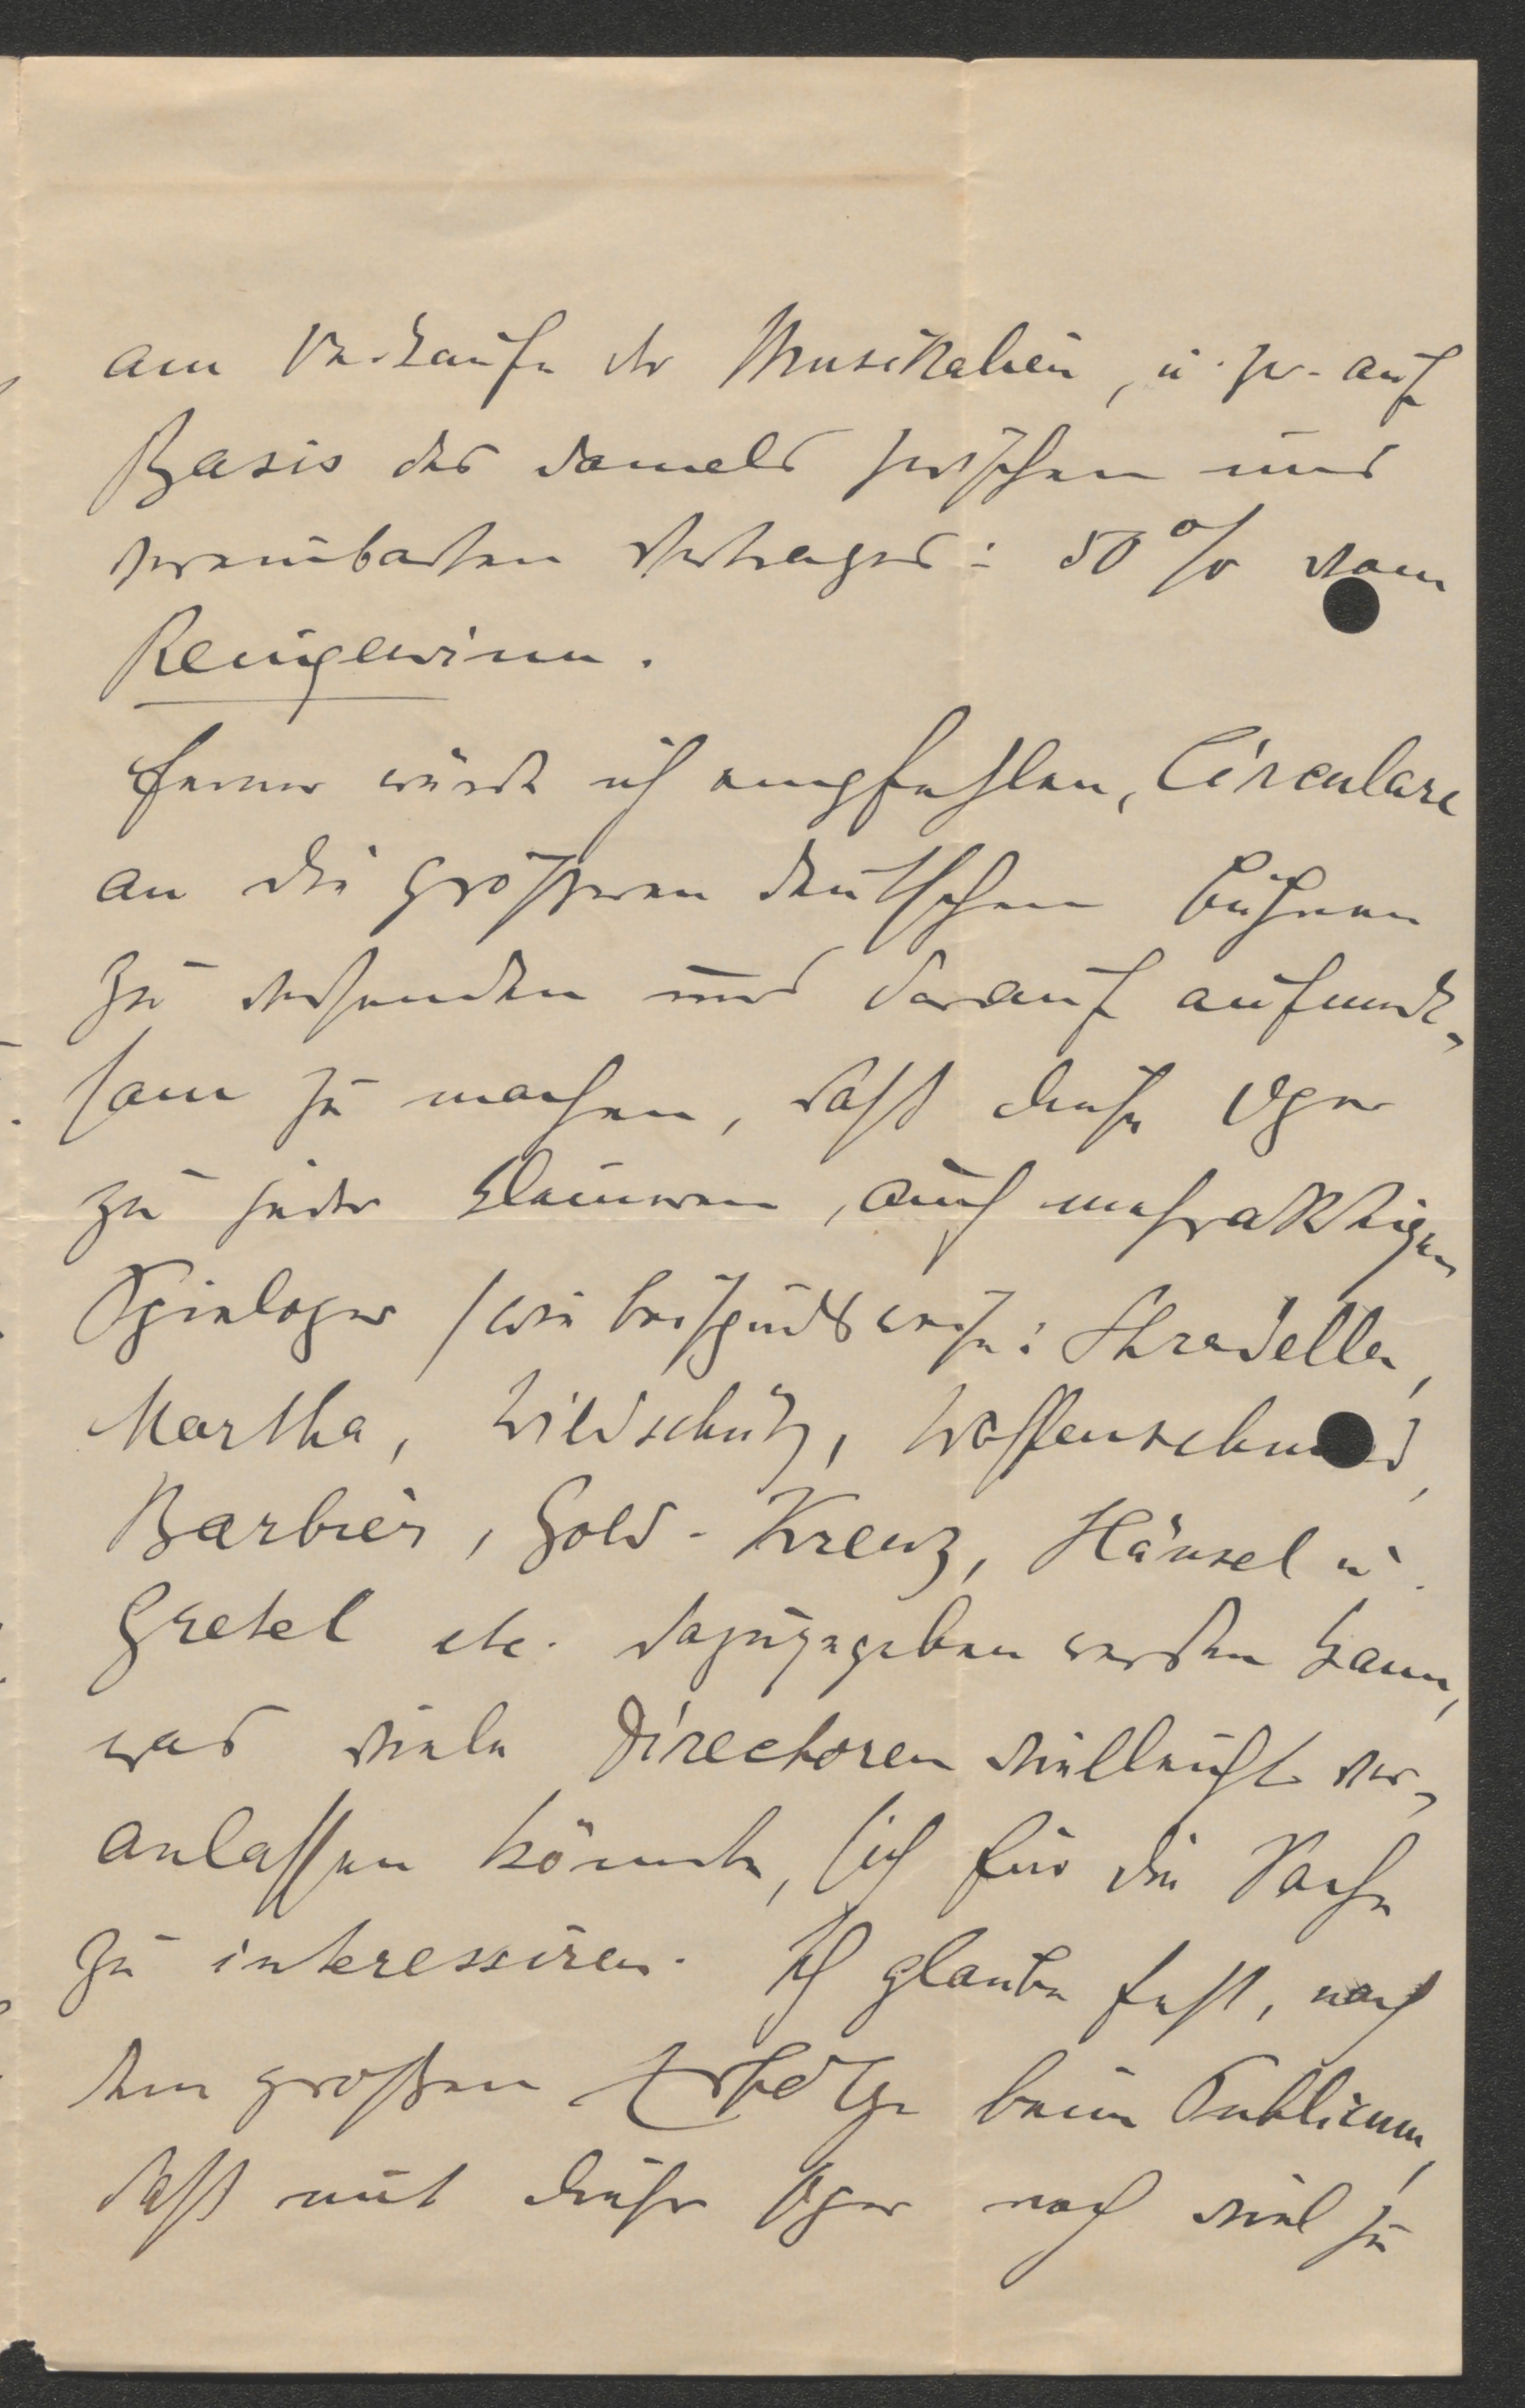 am Verkaufe der Musikalien, u. zw. auf
Basis des damals zwischen uns
vereinbarten Vertrages: 50% vom
Reingewinn.
Ferner würde ich empfehlen, Circulare
an die größeren deutschen Bühnen
zu versenden und darauf aufmerk-
sam zu machen, dass diese Oper
zu jeder kleineren, auch mehraktigen
Spieloper (wie beispielsweise: Stradella,
Martha, Wildschütz, Waffenschmied,
Barbier, Gold-Kreuz, Hänsel u.
Gretel etc. dazugegeben werden kann,
was viele Directoren vielleicht ver-
anlassen könnte, sich für die Sache
zu interessiren. Ich glaube fest, nach
dem großen Erfolge beim Publicum,
dass mit dieser Oper noch viel zu